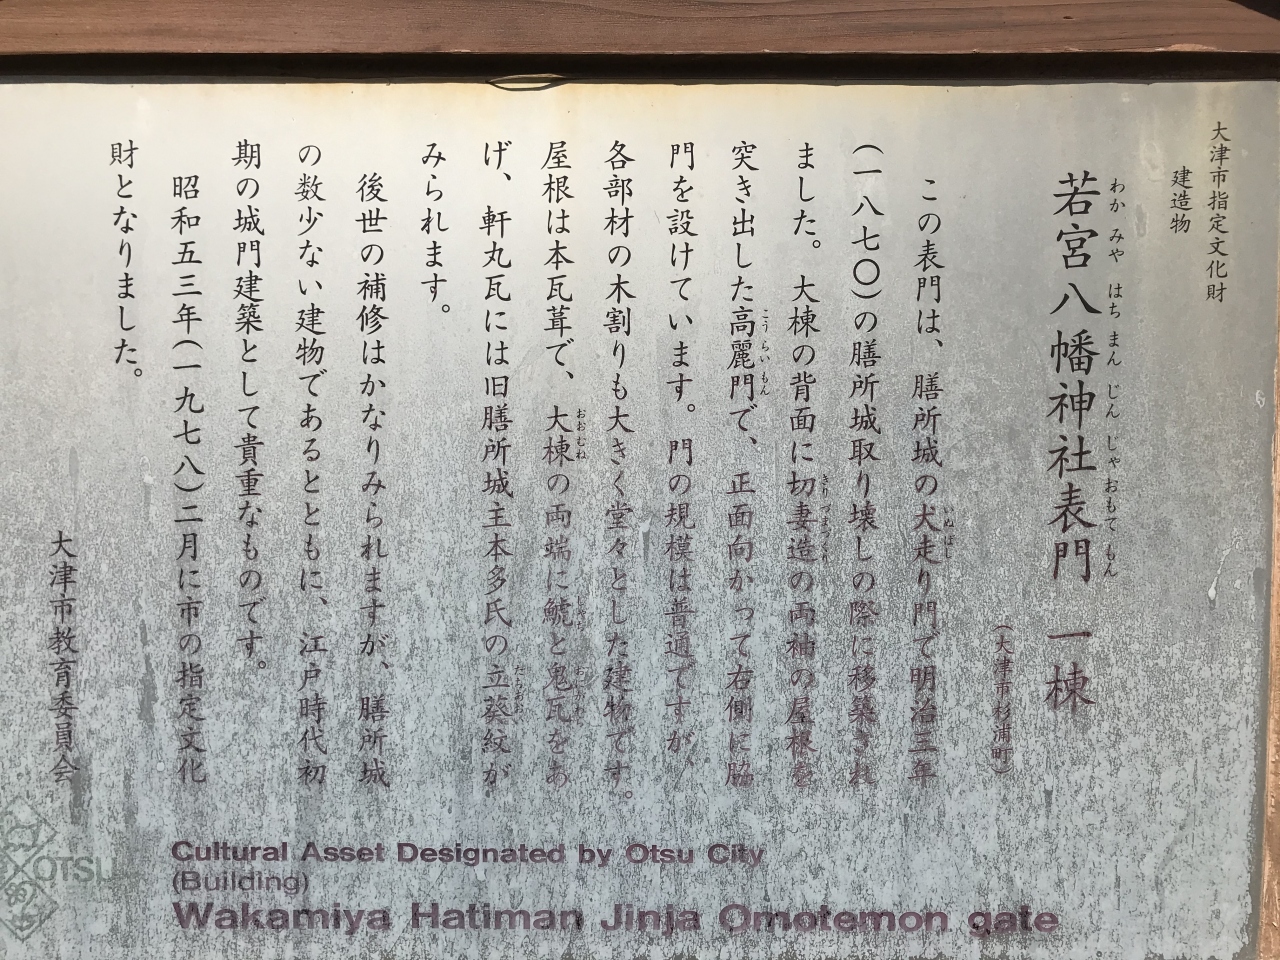 大津市指定文化財
建造物
若宮八幡神社表門 一棟
わか みや はち まん じん じゃ おもて もん
(大津市杉浦町)
この表門は、膳所城の犬走り門で明治三年
いぬばし
(一八七〇)の膳所城取り壊しの際に移築され
ました。大棟の背面に切妻造の両袖の屋根を
きりづまづくり
突き出した高麗門で、正面向かって右側に脇
こうらいもん
門を設けています。門の規模は普通ですが、
各部材の木割りも大きく堂々とした建物です。
屋根は本瓦葺で、大棟の両端に鯱と鬼瓦をあ
おおむね
げ、軒丸瓦には旧膳所城主本多氏の立葵紋が
たちあおい
みられます。
後世の補修はかなりみられますが、膳所城
の数少ない建物であるとともに、江戸時代初
期の城門建築として貴重なものです。
昭和五三年(一九七八)二月に市の指定文化
財となりました。
大津市教育委員会
Cultural Asset Designated by Otsu City
(Building)
Wakamiya Hatiman Jinja Omotemon gate
OTSU